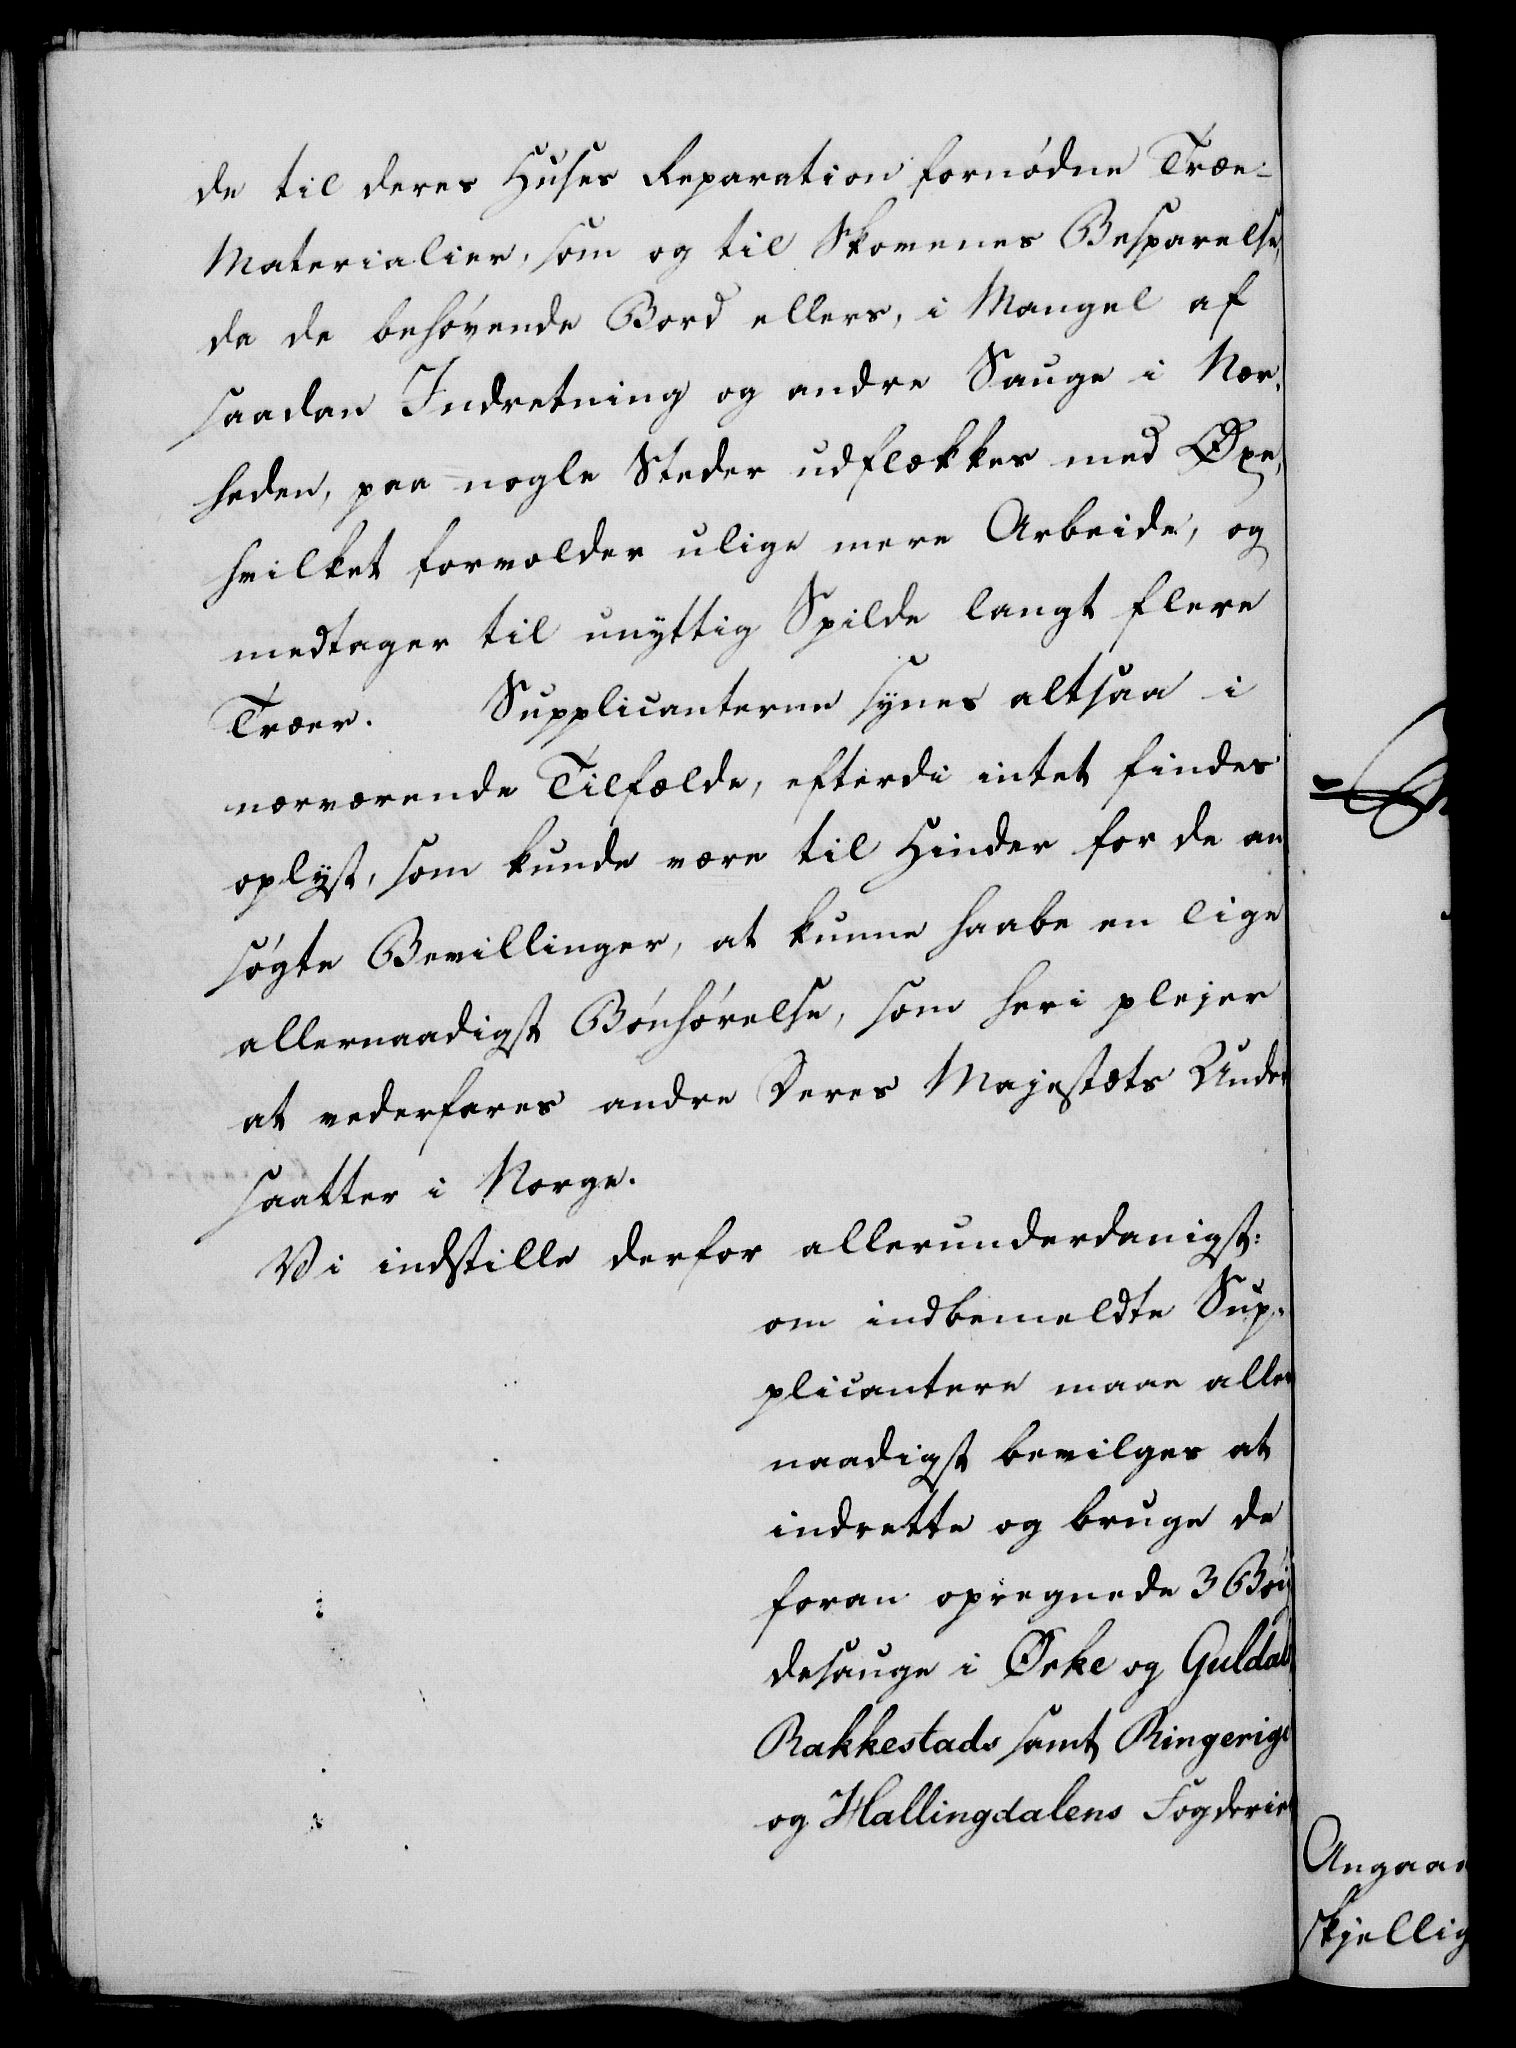 de til deres Huses Reparation fornødne Træe-
Materialier, som og til Skovenes Besparelse,
da de behøvende Bord ellers, i Mangel af
saadan Indretning og andre Sauge i Nær-
heden, paa nogle Steder udflækkes med Øxe,
hvilket forvolder ulige mere Arbeide, og
medtager til unyttig Spilde langt flere
Træer. Supplicanterne synes altsaa i
nærværende Tilfælde, efterdi intet findes
oplyst, som kunde være til Hinder for de an
søgte Bevillinger, at kunne haabe en lige
allernaadigst Bønhørelse, som heri plejer
at vederfares andre Deres Majestæts Under
saatter i Norge.
Vi indstille derfor allerunderdanigst:
om indbemeldte Sup-
plicantere maae aller
naadigst bevilges at
indrette og bruge de
foran opregnede 3 Byg
desauge i Ørke og Guldals
Rakkestads samt Ringerige
og Hallingdalens Fogderier
Angaae
skjellig